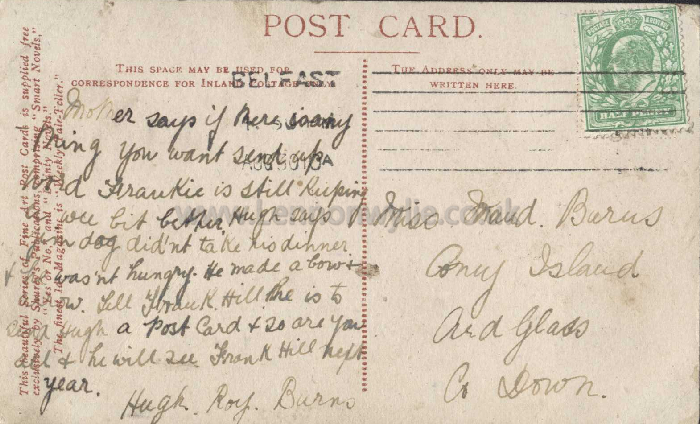 POST CARD.
THIS SPACE MAY BE USED FOR
CORRESPONDENCE FOR INLAND POSTAGE ONLY
THE ADDRESS ONLY MAY BE
WRITTEN HERE.
BELFAST
HALF PENNY
This beautiful Series of Fine Art Post Cards is supplied free
exclusively by Shurey's Publications, comprising "Smart Novels,"
"Yes or No," and "Dainty Novels."
The finest 1d. Magazine is "Weekly Tale-Teller."
Mother says if there is any
thing you want send up
Frankie is still keeping
a wee bit better Hugh says
dog did'nt take his dinner
& wasn't hungry. He made a bow &
wow. Tell Frank Hill he is to
send Hugh a Post Card & so are you
& he will see Frank Hill next
year.
Hugh. Roy. Burns
Miss Maud. Burns
Coney Island
Ard Glass
Co Down.